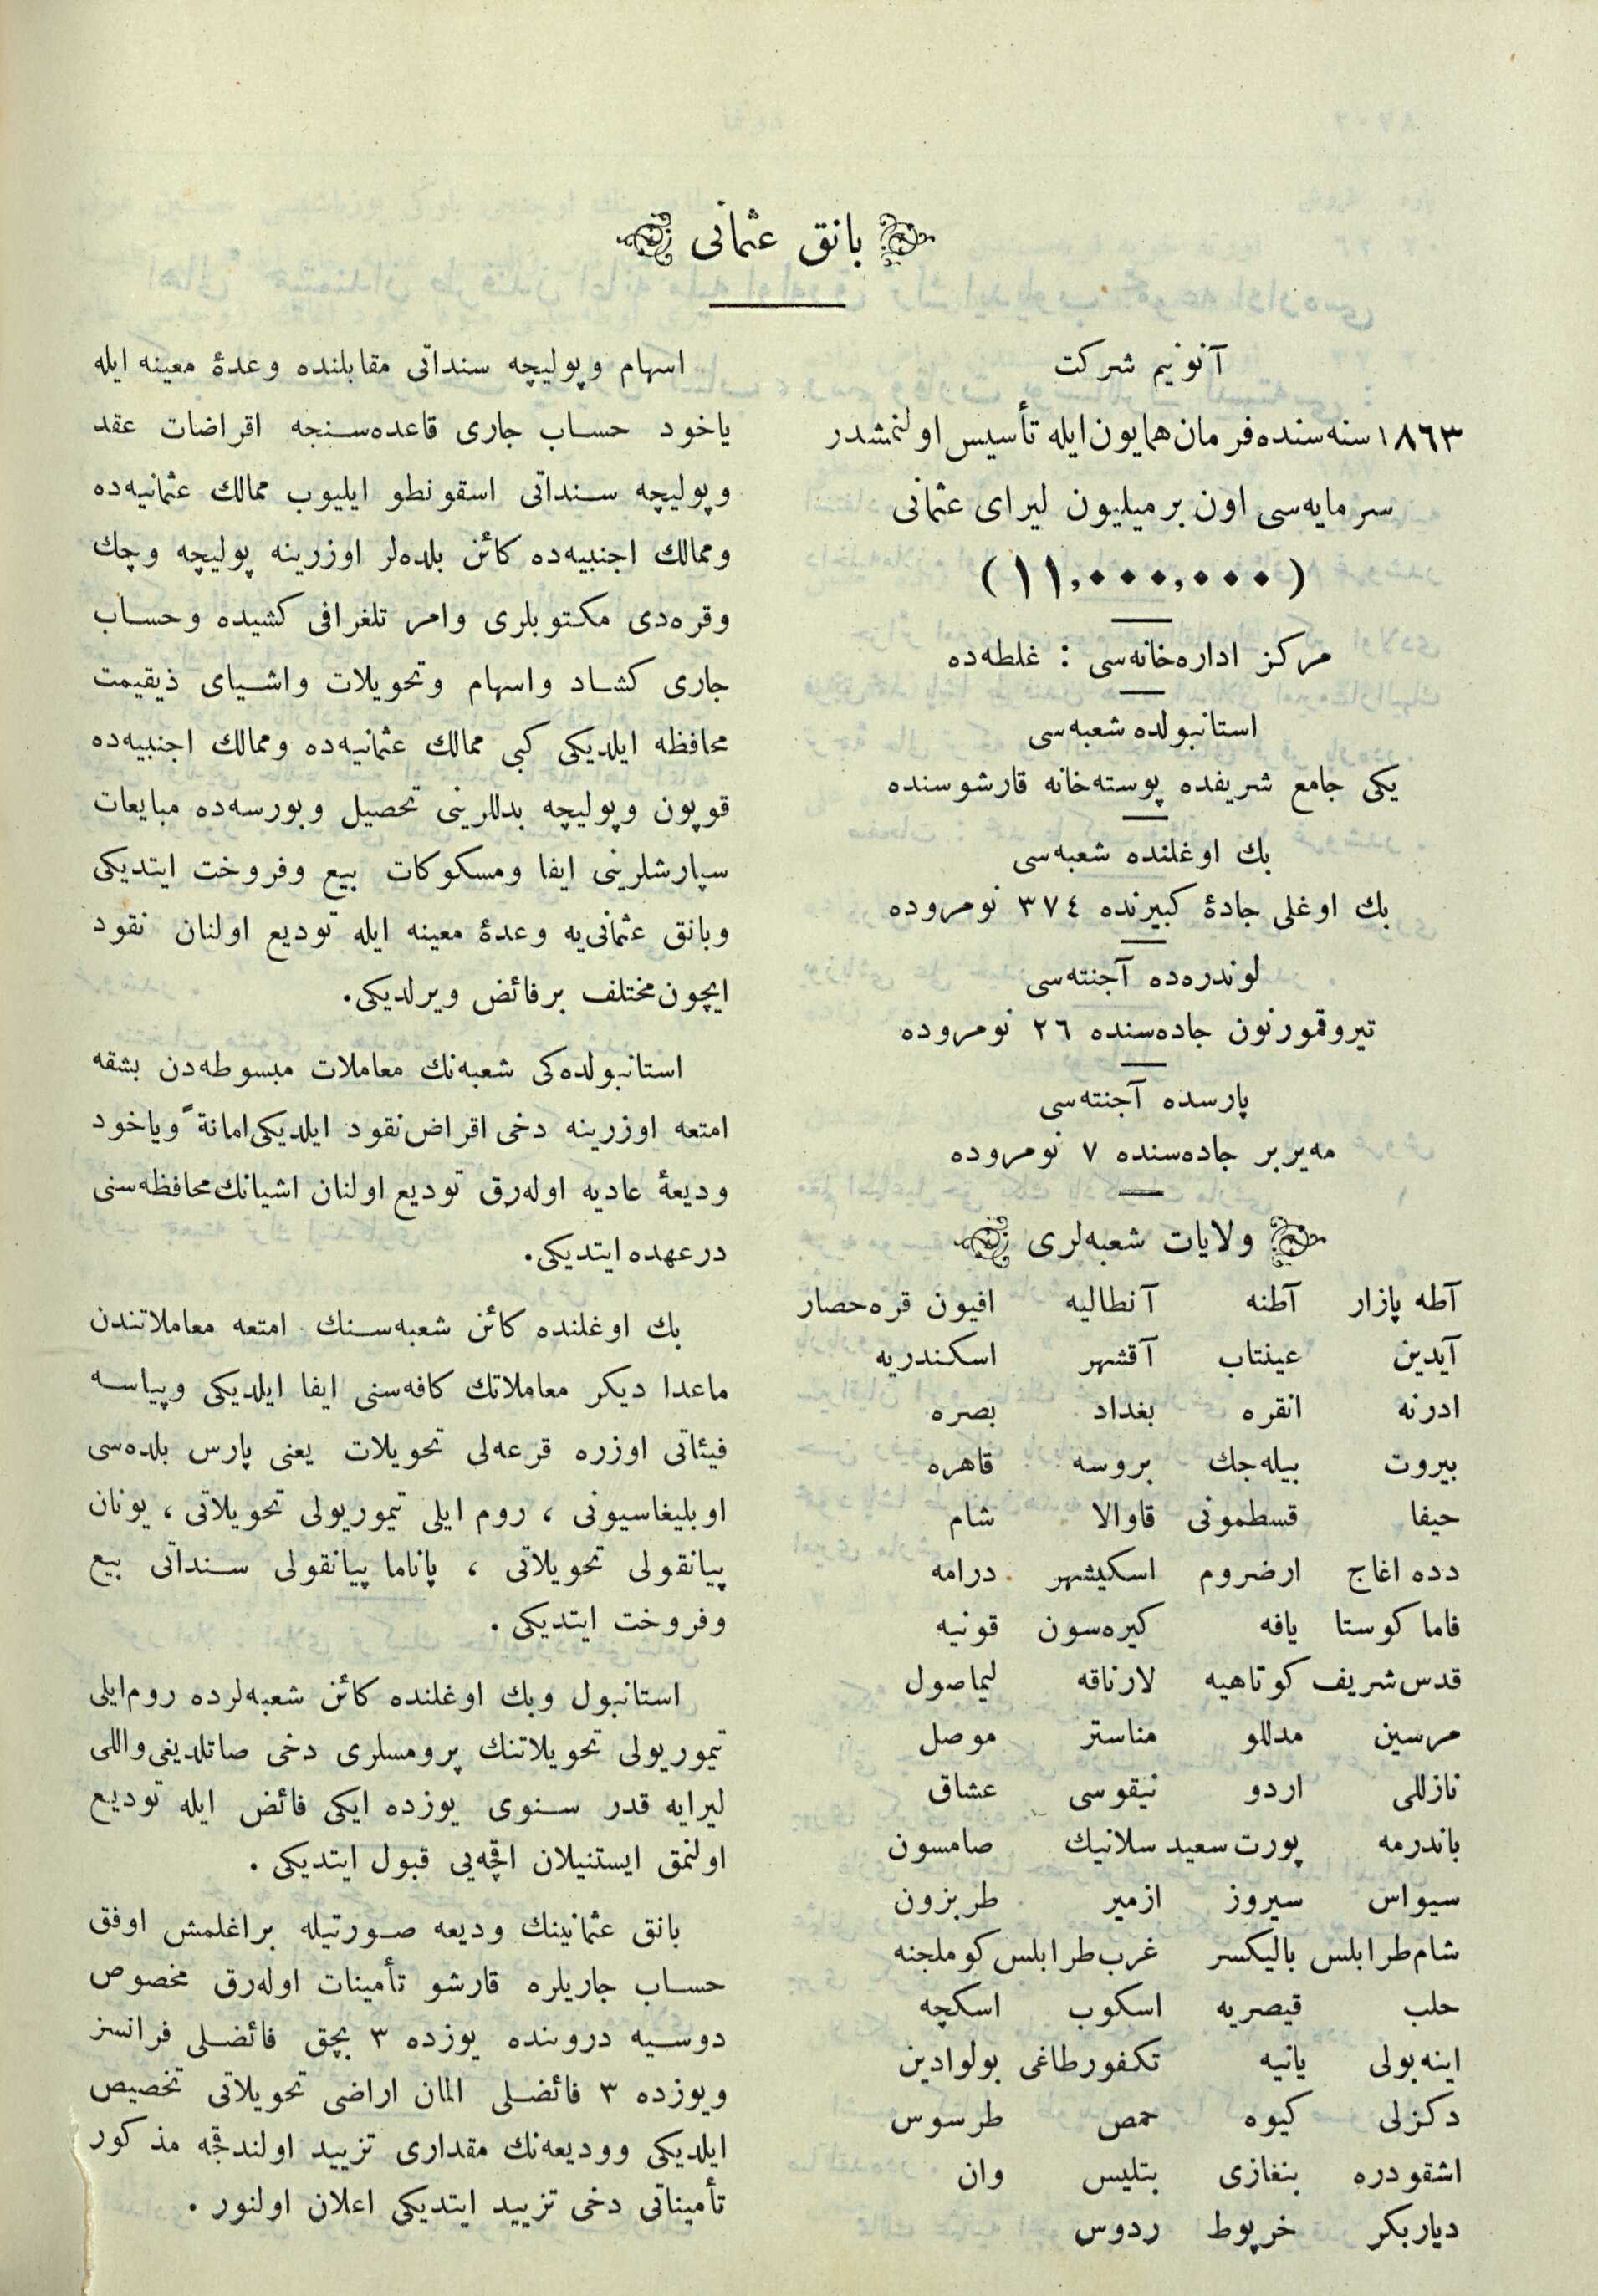 بانق عثمانی
آنونیم شرکت
١٨٦٣ سنه سنده فرمان همایون ایله تأسیس اولنمشدر
سرمایه‌سی اون بر میلیون لیرای عثمانی
(١١,٠٠٠,٠٠٠)
مرکز اداره‌خانه‌سی : غلطه‌ده
استانبولده شعبه‌سی
یکی جامع شریفده پوسته‌خانه قارشوسنده
بك اوغلنده شعبه‌سی
بك اوغلی جادهٔ کبیرنده ٣٧٤ نومروده
لوندره‌ده آجنته‌سی
تیروقمورتون جاده‌سنده ٢٦ نومروده
پارسده آجنته‌سی
مه‌یربر جاده‌سنده ٧ نومروده
ولایات شعبه‌لری
آطه پازار آطنه آنطالیه افیون قره‌حصار
آیدین عینتاب آقشهر اسکندریه
ادرنه انقره بغداد بصره
بیروت بیله‌جك بروسه قاهره
حیفا قسطمونی قاوالا شام
دده اغاج ارضروم اسکیشهر درامه
فاماکوستا یافه کیره‌سون قونیه
قدس‌شریف کوتاهیه لارناقه لیماصول
مرسین مدللو مناستر موصل
نازللی اردو نیقوسی عشاق
باندرمه پورت سعید سلانیك صامسون
سیواس سیروز ازمیر طربزون
شام‌طرابلس بالیکسر غرب‌طرابلس کوملجنه
حلب قیصریه اسکوب اسکچه
اینه‌بولی یانیه تکفورطاغی بولوادین
دکزلی کیوه حمص طرسوس
اشقودره بنغازی بتلیس وان
دیاربکر خرپوط ردوس
اسهام وپولیچه سنداتی مقابلنده وعدهٔ معینه ایله
یاخود حساب جاری قاعده‌سنجه اقراضات عقد
وپولیچه سنداتی اسقونطو ایلیوب ممالك عثمانیه‌ده
وممالك اجنبیه‌ده کائن بلده‌لر اوزرینه پولیچه وچك
وقره‌دی مکتوبلری وامر تلغرافی کشیده وحساب
جاری کشاد واسهام وتحویلات واشیای ذیقیمت
محافظه ایلدیکی کبی ممالك عثمانیه‌ده وممالك اجنبیه‌ده
قوپون وپولیچه بدللرینی تحصیل وبورسه‌ده مبایعات
سپارشلرینی ایفا ومسکوکات بیع وفروخت ایتدیکی
وبانق عثمانی‌یه وعدهٔ معینه ایله تودیع اولنان نقود
ایچون مختلف بر فائض ویرلدیکی.
استانبولده‌کی شعبه‌نك معاملات مبسوطه‌دن بشقه
امتعه اوزرینه دخی اقراض نقود ایلدیکی امانةً ویاخود
ودیعهٔ عادیه اوله‌رق تودیع اولنان اشیانك محافظه‌سنی
درعهده ایتدیکی.
بك اوغلنده کائن شعبه‌سنك امتعه معاملاتندن
ماعدا دیکر معاملاتك کافه‌سنی ایفا ایلدیکی وپیاسه
فیئاتی اوزره قرعه‌لی تحویلات یعنی پارس بلده‌سی
اوبلیغاسیونی ، روم ایلی تیموریولی تحویلاتی ، یونان
پیانقولی تحویلاتی ، پاناما پیانقولی سنداتی بیع
وفروخت ایتدیکی .
استانبول وبك اوغلنده کائن شعبه‌لرده روم‌ایلی
تیموریولی تحویلاتنك پرومسلری دخی صاتلدیغی واللی
لیرایه قدر سنوی یوزده ایکی فائض ایله تودیع
اولنمق ایستنیلان اقچه‌یی قبول ایتدیکی .
بانق عثمانینك ودیعه صورتیله براغلمش اوفق
حساب جاریلره قارشو تأمینات اوله‌رق مخصوص
دوسیه دروننده یوزده ٣ بچق فائضلی فرانسز
ویوزده ٣ فائضلی المان اراضی تحویلاتی تخصیص
ایلدیکی وودیعه‌نك مقداری تزیید اولندقجه مذکور
تأمیناتی دخی تزیید ایتدیکی اعلان اولنور .